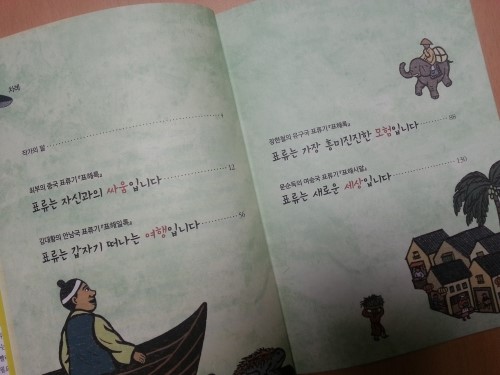 차례
작가의 말
최부의 중국 표류기 『표해록』
표류는 자신과의 싸움입니다 12
김대황의 안남국 표류기 『표해일록』
표류는 갑자기 떠나는 여행입니다 56
장한철의 유구국 표류기 『표해록』
표류는 가장 흥미진진한 모험입니다 86
문순득의 여송국 표류기 『표해시말』
표류는 새로운 세상입니다 130